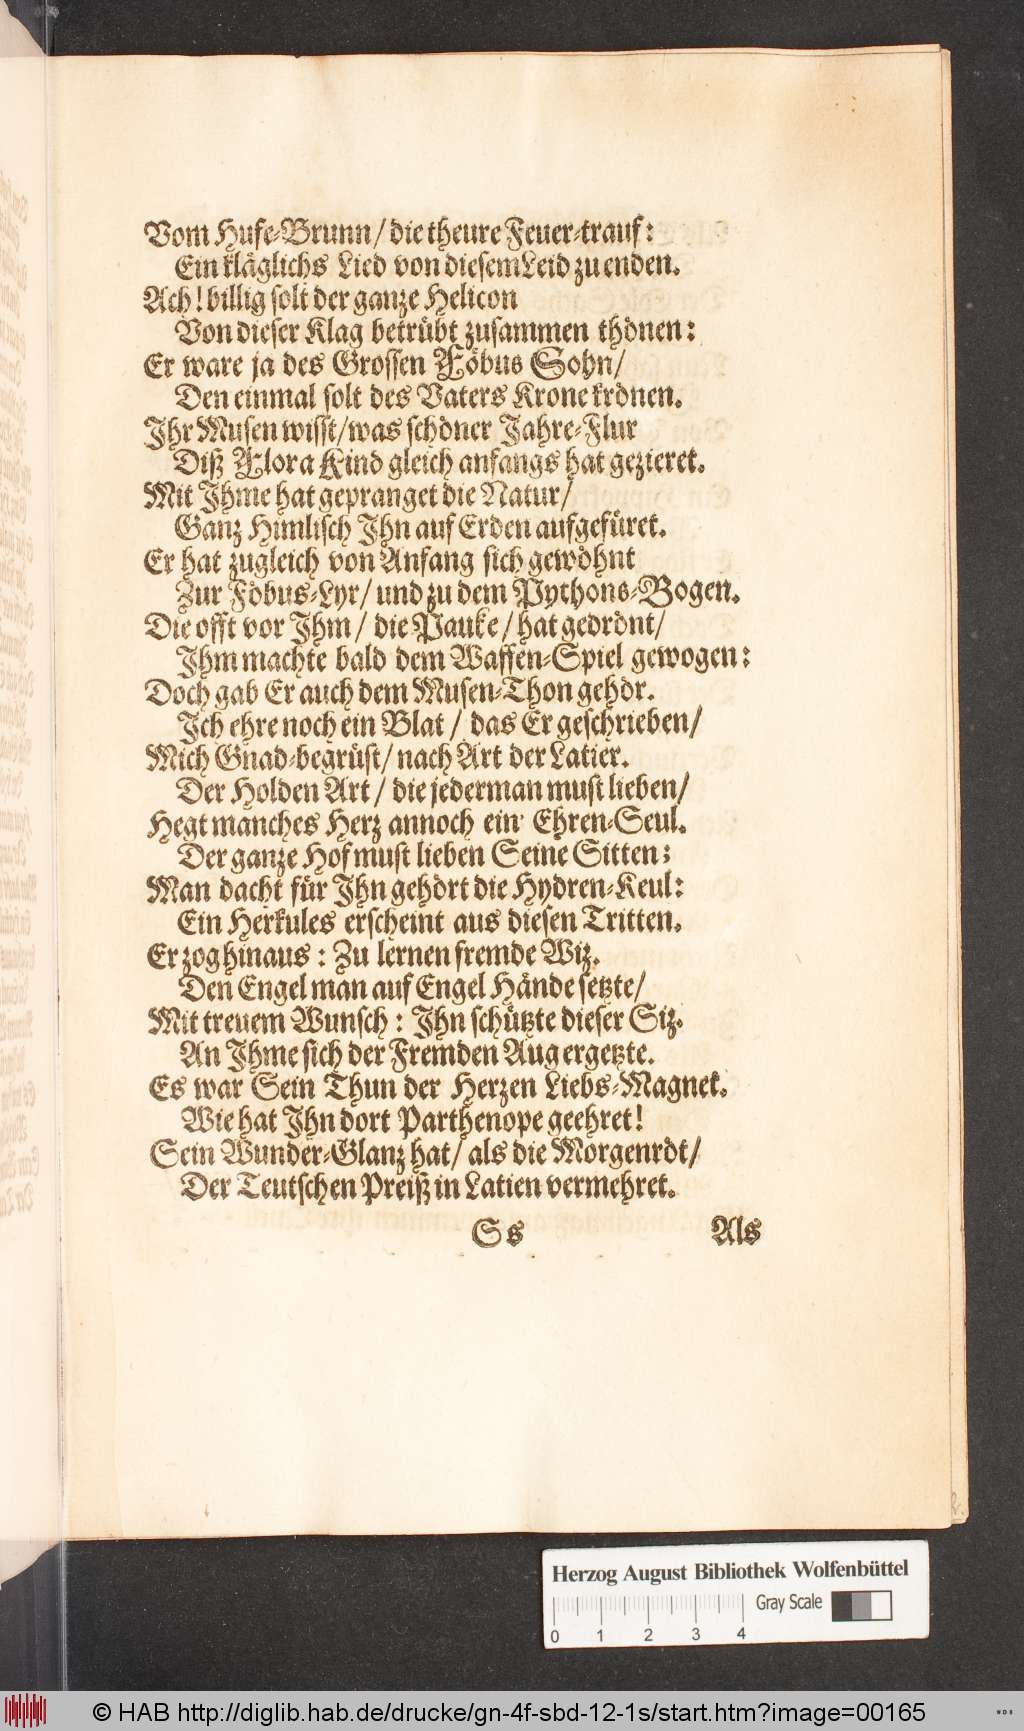 Vom Hufe-Brunn/ die theure Feuer-trauf:
Ein kläglichs Lied von diesem Leid zu enden.
Ach! billig solt der ganze Helicon
Von dieser Klag betrübt zusammen thönen:
Er ware ja des Grossen Föbus Sohn/
Den einmal solt des Vaters Krone krönen.
Ihr Musen wisst/was schöner Jahre-Flur
Diß Flora Kind gleich anfangs hat gezieret.
Mit Ihme hat gepranget die Natur/
Ganz Himlisch Ihn auf Erden aufgefüret.
Er hat zugleich von Anfang sich gewöhnt
Zur Föbus-Lyr/ und zu dem Pythons-Bogen.
Die offt vor Ihm/ die Pauke/ hat gedrönt/
Ihm machte bald dem Waffen-Spiel gewogen:
Doch gab Er auch dem Musen-Thon gehör.
Ich ehre noch ein Blat/ das Er geschrieben/
Mich Gnad-begrüst/ nach Art der Latier.
Der Holden Art/ die jederman must lieben/
Hegt manches Herz annoch ein' Ehren-Seul.
Der ganze Hof must lieben Seine Sitten:
Man dacht für Ihn gehört die Hydren-Keul:
Ein Herkules erscheint aus diesen Tritten.
Er zog hinaus: Zu lernen fremde Wiz.
Den Engel man auf Engel Hände setzte/
Mit treuem Wunsch: Ihn schützte dieser Siz.
An Ihme sich der Fremden Aug ergetzte.
Es war Sein Thun der Herzen Liebs-Magnet.
Wie hat Ihn dort Parthenope geehret!
Sein Wunder-Glanz hat/ als die Morgenröt/
Der Teutschen Preiß in Latien vermehret.
Ss Als
Herzog August Bibliothek Wolfenbüttel
Gray Scale
0 1 2 3 4
© HAB http://diglib.hab.de/drucke/gn-4f-sbd-12-1s/start.htm?image=00165